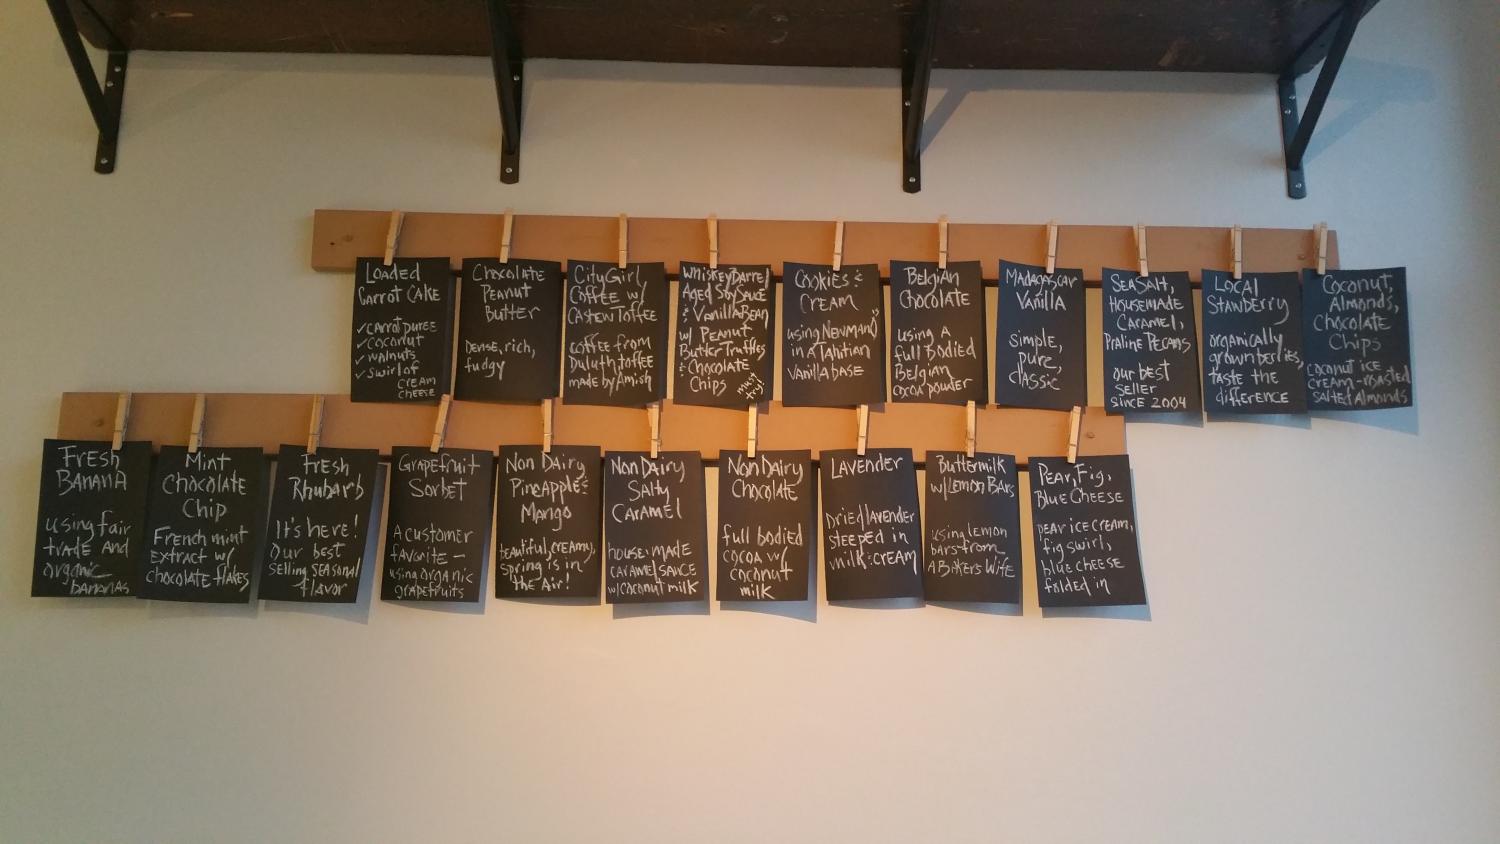 Loaded
Carrot Cake
✓carrot puree
✓coconut
✓walnuts
✓swirl of
cream
cheese
Chocolate
Peanut
Butter
Dense, rich,
fudgy
City Girl
Coffee w/
Cashew Toffee
coffee from
Duluth, toffee
made by Amish
Whiskey Barrel
Aged Soy Sauce
& Vanilla Bean
w/ Peanut
Butter Truffles
& Chocolate
Chips
must
try!
Cookies &
Cream
using Newman O's
in a Tahitian
Vanilla base
Belgian
Chocolate
using a
full bodied
Belgian
cocoa powder
Madagascar
Vanilla
simple,
pure,
classic
Sea Salt,
Housemade
Caramel,
Praline Pecans
our best
seller
since 2004
Local
Strawberry
organically
grown berries,
taste the
difference
Coconut,
Almonds,
Chocolate
Chips
coconut ice
cream-roasted
salted almonds
Fresh
Banana
using fair
trade and
organic
bananas
Mint
Chocolate
Chip
French mint
extract w/
chocolate flakes
Fresh
Rhubarb
It's here!
Our best
selling seasonal
flavor
Grapefruit
Sorbet
A customer
favorite -
using organic
grapefruits
Non Dairy
Pineapple &
Mango
beautiful, creamy,
spring is in
the Air!
Non Dairy
Salty
Caramel
house-made
caramel sauce
w/coconut milk
Non Dairy
Chocolate
full bodied
cocoa w/
coconut
milk
Lavender
Dried lavender
steeped in
milk & cream
Buttermilk
w/Lemon Bars
using lemon
bars from
A Baker's Wife
Pear, Fig,
Blue Cheese
pear ice cream,
fig swirl,
blue cheese
folded in